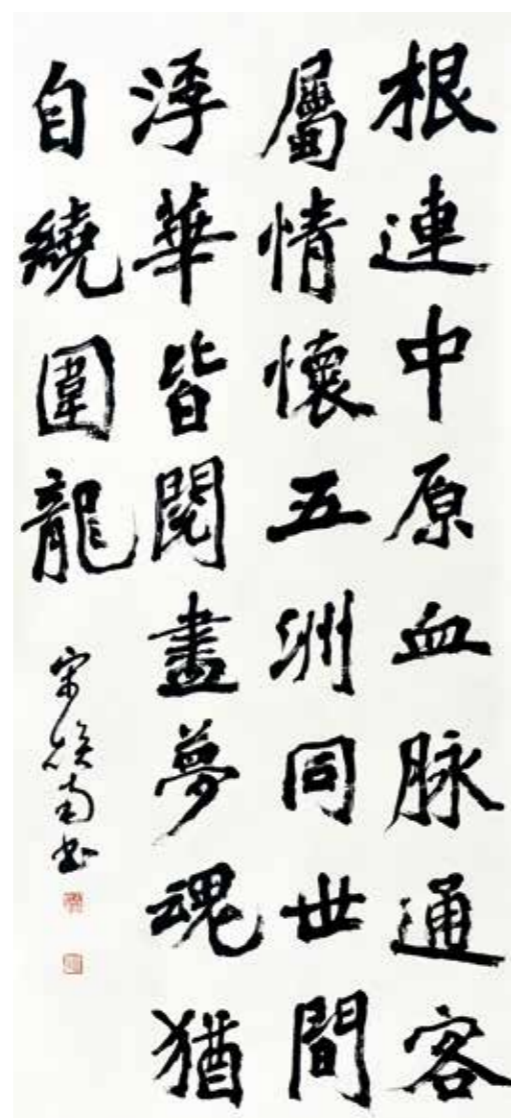 根連中原血脉通客
屬情懷五洲同世間
浮華皆閱盡夢魂猶
自繞圍龍
宋煥南書